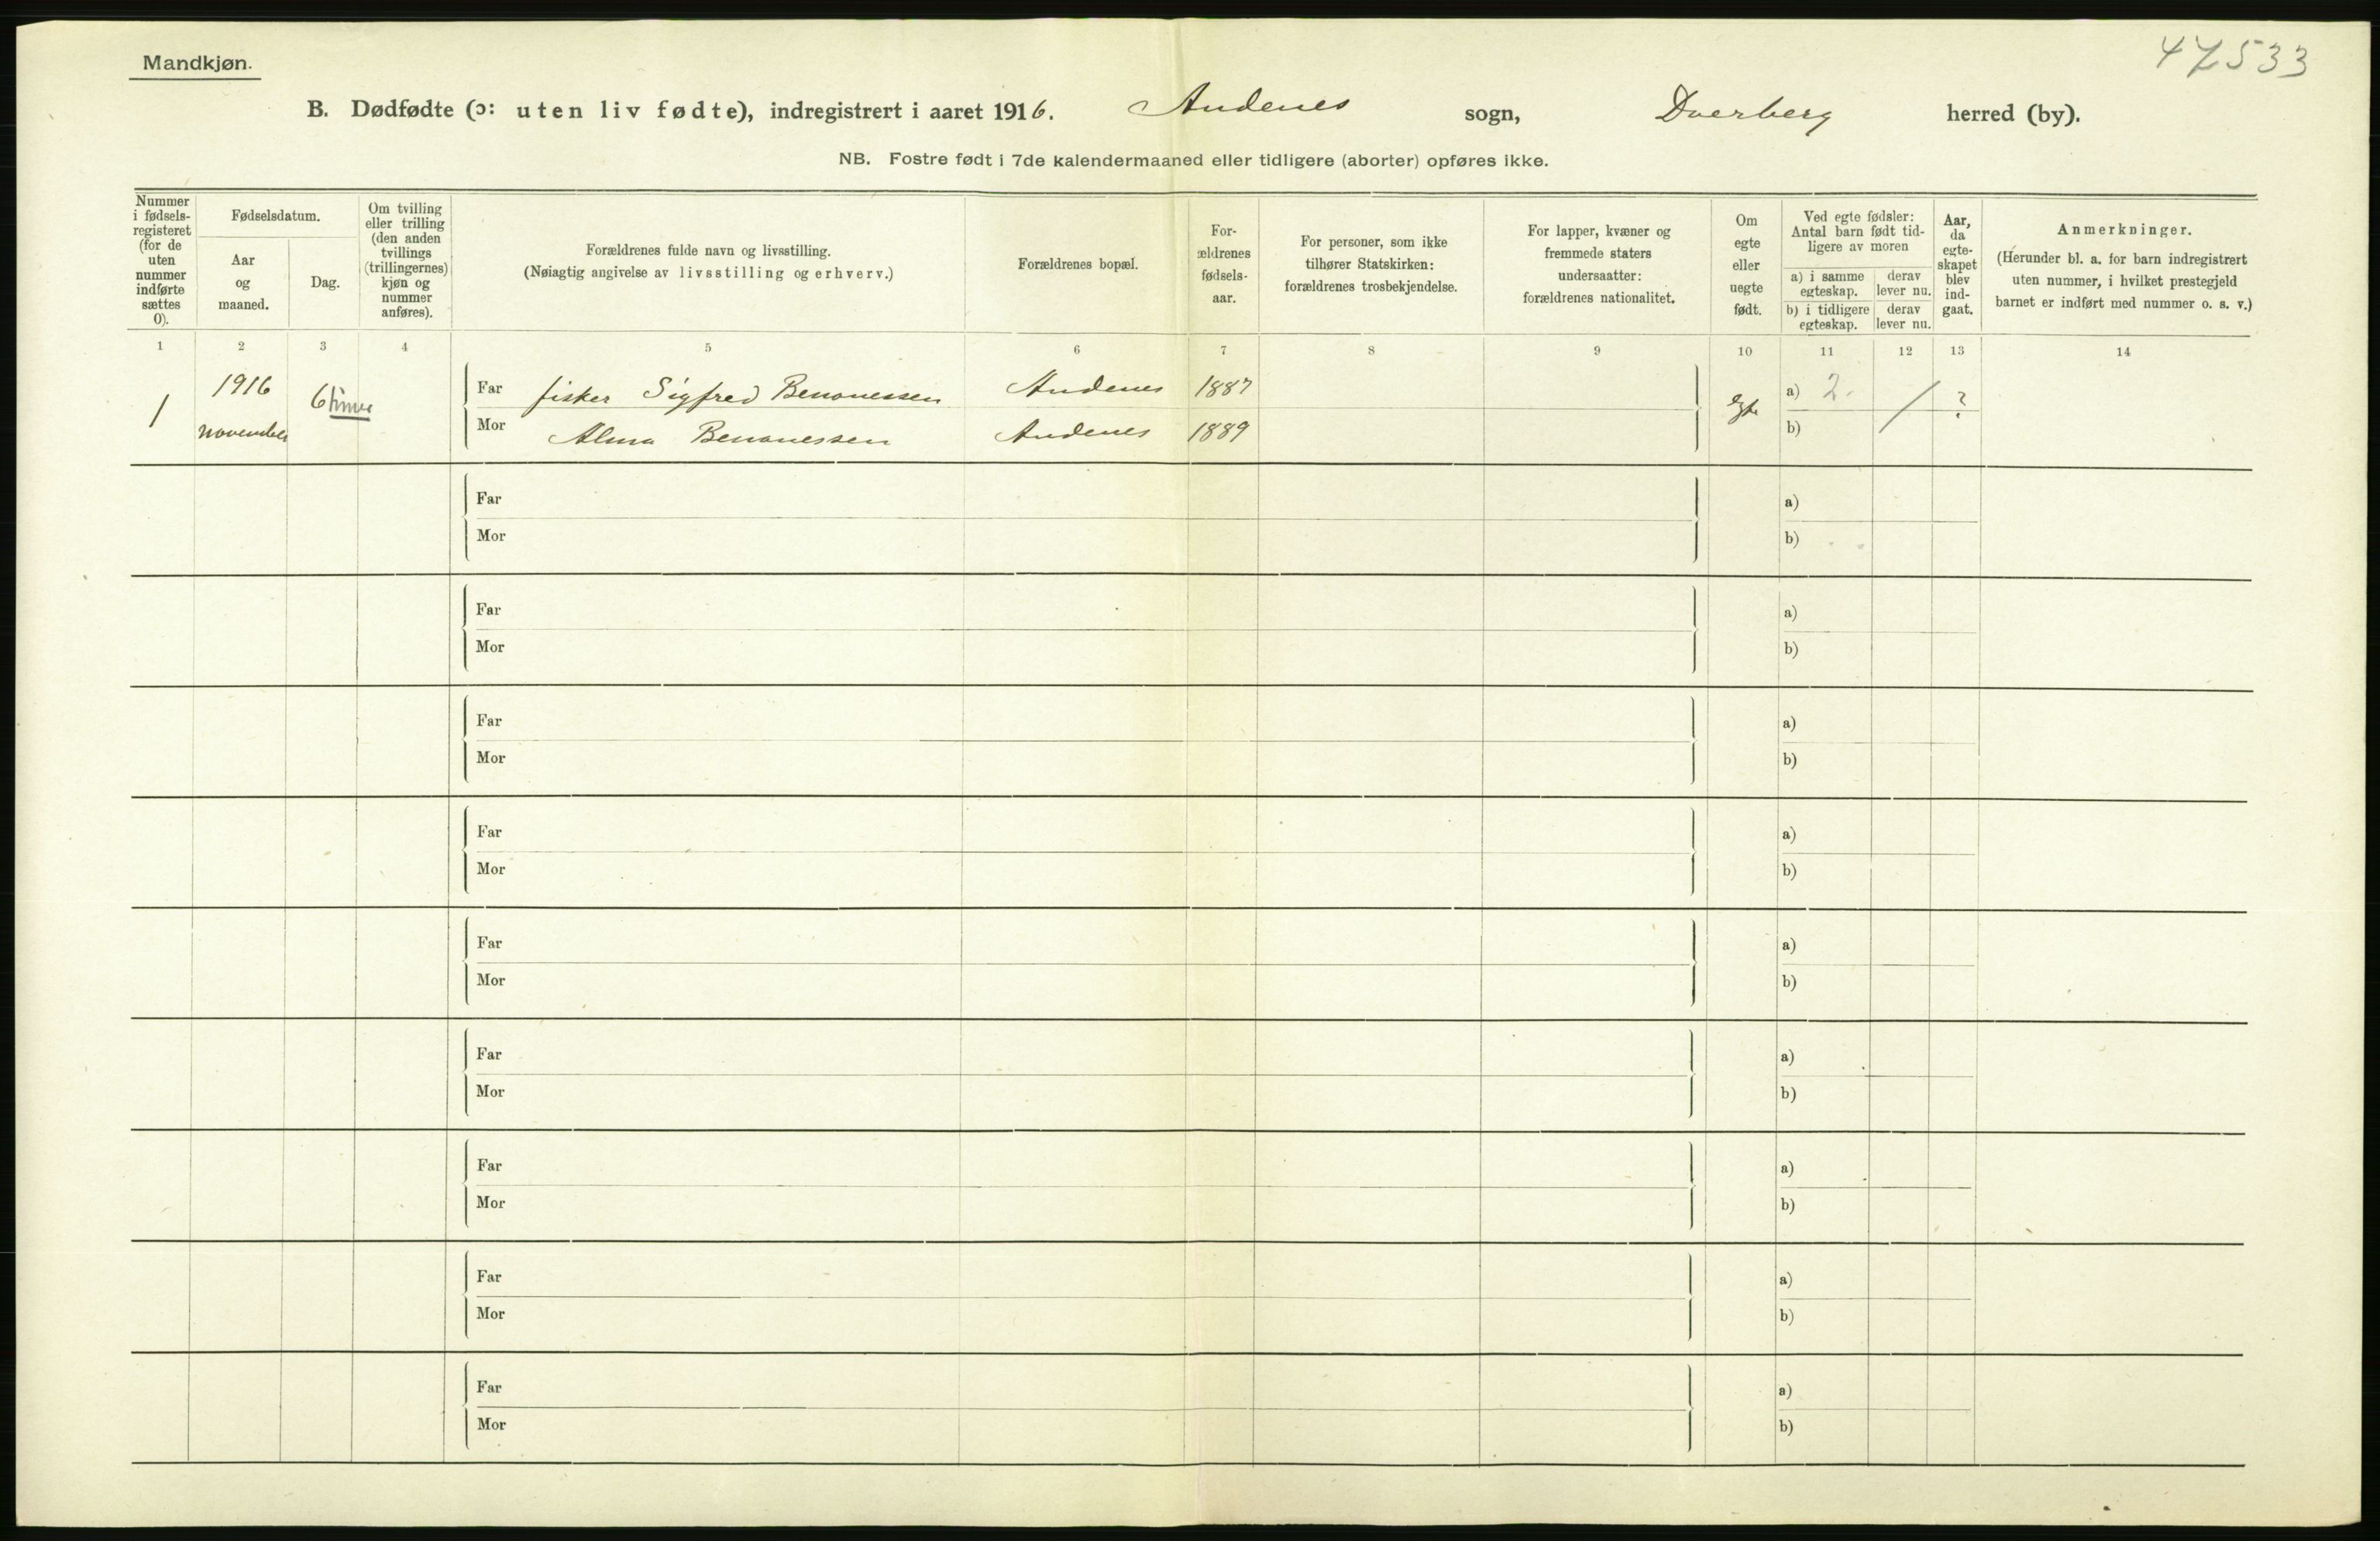 Mandkjøn.
47533
B. Dødfødte (ɔ: uten liv fødte), indregistrert i aaret 1916. Andenes sogn, Dverberg herred (by).
NB. Fostre født i 7de kalendermaaned eller tidligere (aborter) opføres ikke.
Nummer
i fødsels-
registeret
(for de
uten
nummer
indførte
sættes
0).
Fødselsdatum.
Aar
og
maaned.
Dag.
Om tvilling
eller trilling
(den anden
tvillings
(trillingernes)
kjøn og
nummer
anføres).
Forældrenes fulde navn og livsstilling.
(Nøiagtig angivelse av livsstilling og erhverv.)
Forældrenes bopæl.
For-
ældrenes
fødsels-
aar.
For personer, som ikke
tilhører Statskirken:
forældrenes trosbekjendelse.
For lapper, kvæner og
fremmede staters
undersaatter:
forældrenes nationalitet.
Om
egte
eller
uegte
født.
Ved egte fødsler:
Antal barn født tid-
ligere av moren
a) i samme
egteskap.
derav
lever nu.
b) i tidligere
egteskap.
derav
lever nu.
Aar,
da
egte-
skapet
blev
ind-
gaat.
Anmerkninger.
(Herunder bl. a. for barn indregistrert
uten nummer, i hvilket prestegjeld
barnet er indført med nummer o. s. v.)
1 2 3 4 5 6 7 8 9 10 11 12 13 14
1
1916
november
6 timer
Far fisker Sigfred Benonessen Andenes 1887
Mor Alma Benonessen Andenes 1889
egte
a) 2. / ?
b)
Far a)
Mor b)
Far a)
Mor b)
Far a)
Mor b)
Far a)
Mor b)
Far a)
Mor b)
Far a)
Mor b)
Far a)
Mor b)
Far a)
Mor b)
Far a)
Mor b)